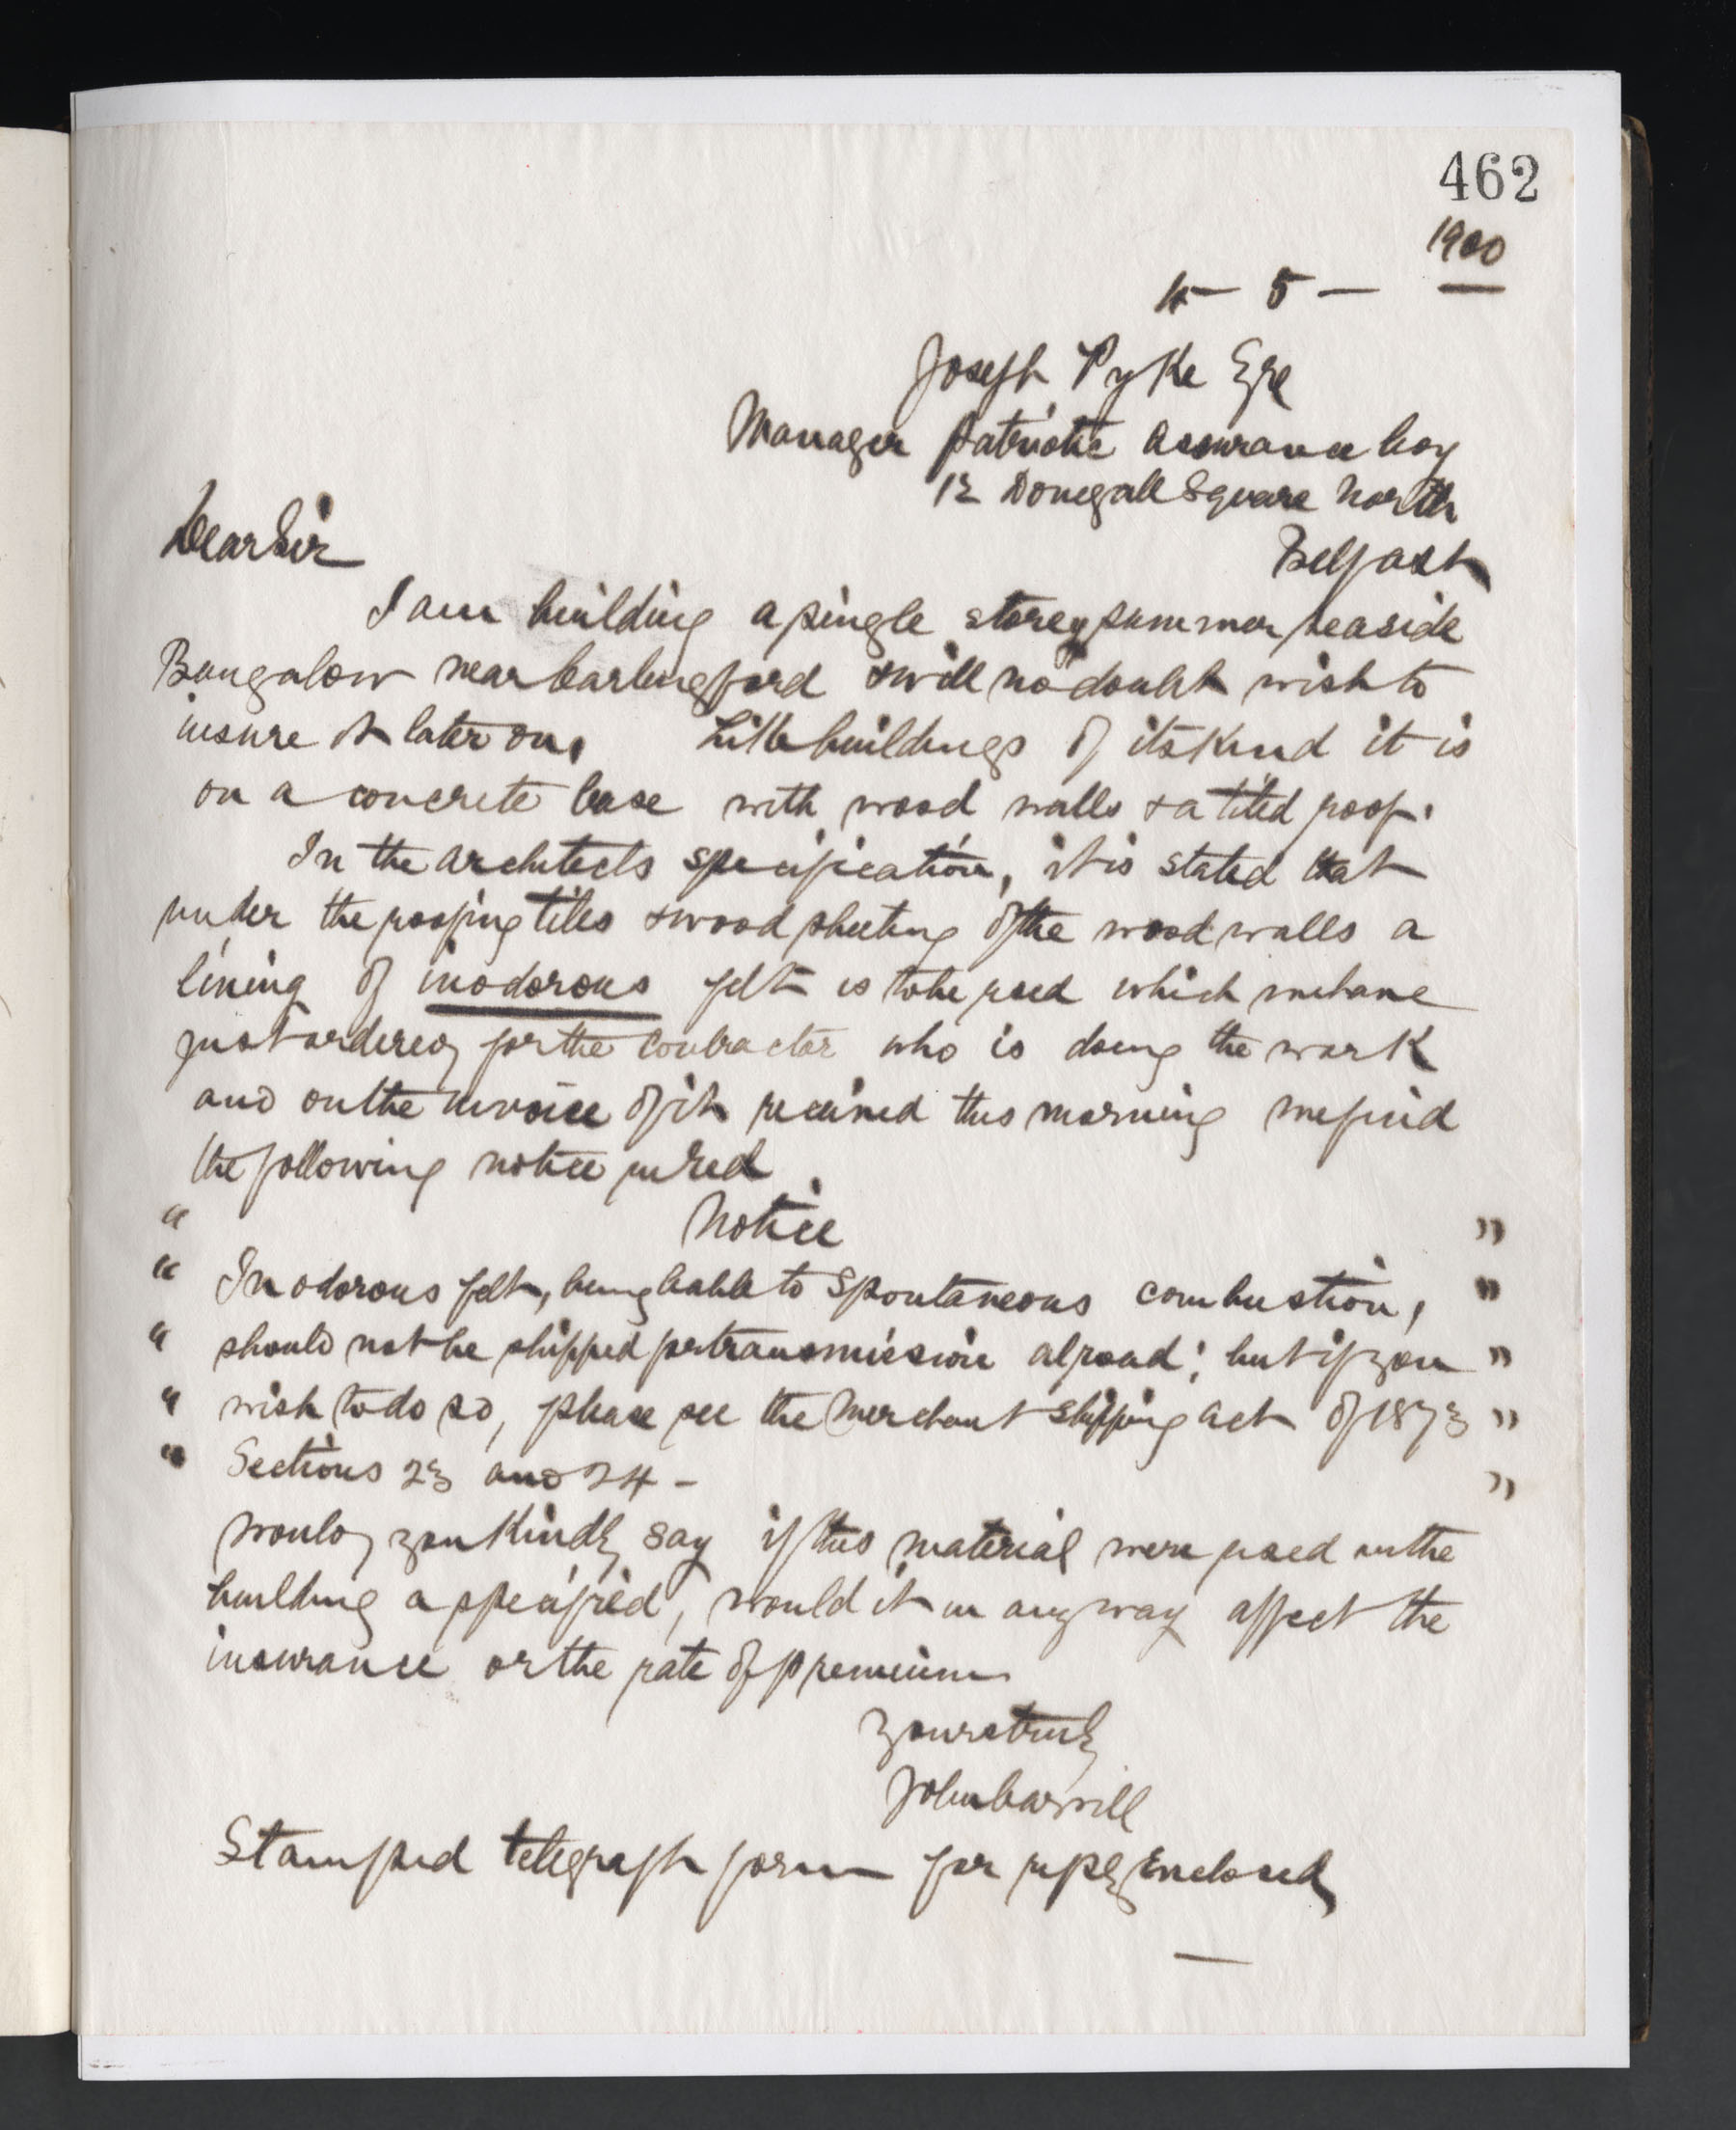 462
1900
4 - 5 -
Joseph Pyke Esqe
Manager Patriotic Assurance Coy
12 Donegall Square North
Belfast
Dear Sir
I am building a single storey summer seaside
Bungalow near Carlingford & will no doubt wish to
insure it later on. Like buildings of its kind it is
on a concrete base with wood walls & a tiled roof.
In the architects specification, it is stated that
under the roofing tiles & wood sheeting of the wood walls a
lining of inodorous felt is to be used which we have
just ordered for the contractor who is doing the work
and on the invoice of it received this morning we find
the following notice in red
" Notice "
" Inodorous felt, being liable to spontaneous combustion, "
" should not be shipped for transmission abroad; but if you "
" wish to do so, please see the Merchant Shipping Act of 1873 "
" Sections 23 and 24 - "
Would you kindly say if this material were used in the
building a specified, would it in any way affect the
insurance or the rate of premium
Yours truly
John Carvill
Stamped telegraph form for reply Enclosed